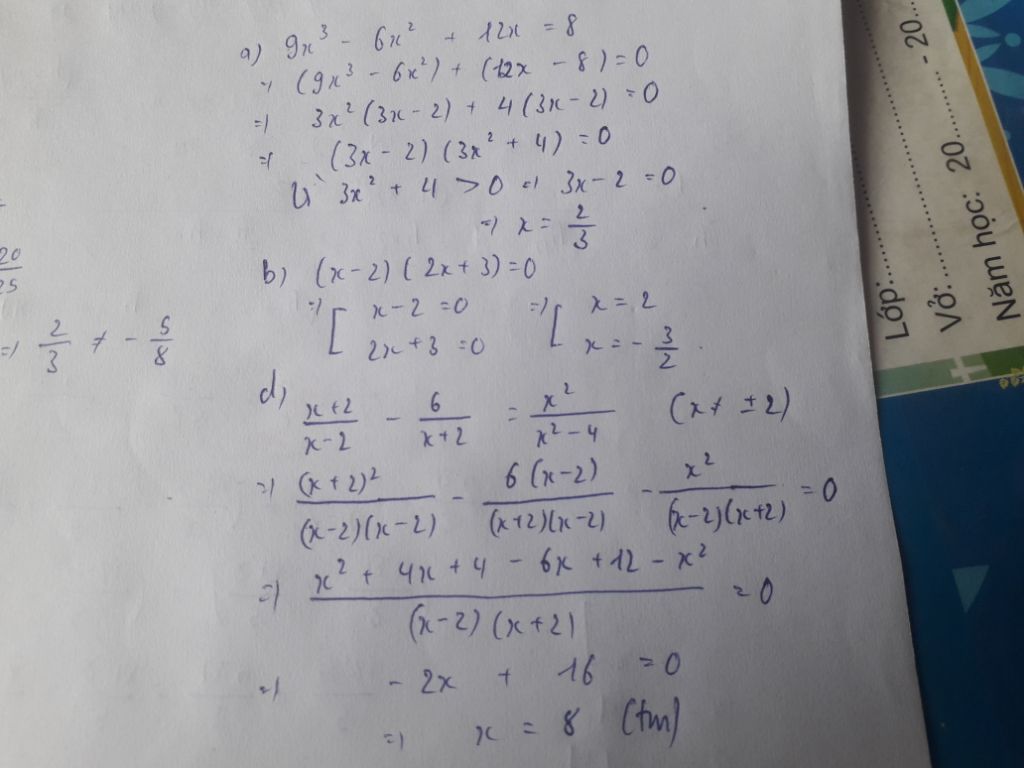 a) 9x³ - 6x² + 12x = 8
=> (9x³ - 6x²) + (12x - 8) = 0
=> 3x² (3x - 2) + 4 (3x - 2) = 0
=> (3x - 2) (3x² + 4) = 0
Vì 3x² + 4 > 0 => 3x - 2 = 0
=> x = 2/3
b) (x - 2) (2x + 3) = 0
=> [ x - 2 = 0 => [ x = 2
2x + 3 = 0 x = - 3/2 .
d) (x + 2)/(x - 2) - 6/(x + 2) = x²/(x² - 4) (x ≠ ± 2)
=> (x + 2)²/((x - 2)(x - 2)) - 6(x - 2)/((x + 2)(x - 2)) - x²/((x - 2)(x + 2)) = 0
=> (x² + 4x + 4 - 6x + 12 - x²)/((x - 2)(x + 2)) = 0
=> - 2x + 16 = 0
=> x = 8 (tm)
20/25
=> 2/3 ≠ - 5/8
Lớp:
Vở: - 20
Năm học: 20